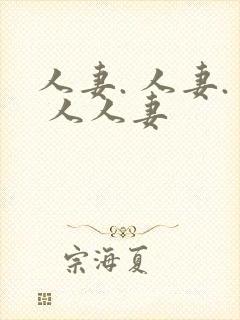 人妻.人妻.
人人妻
宗海夏